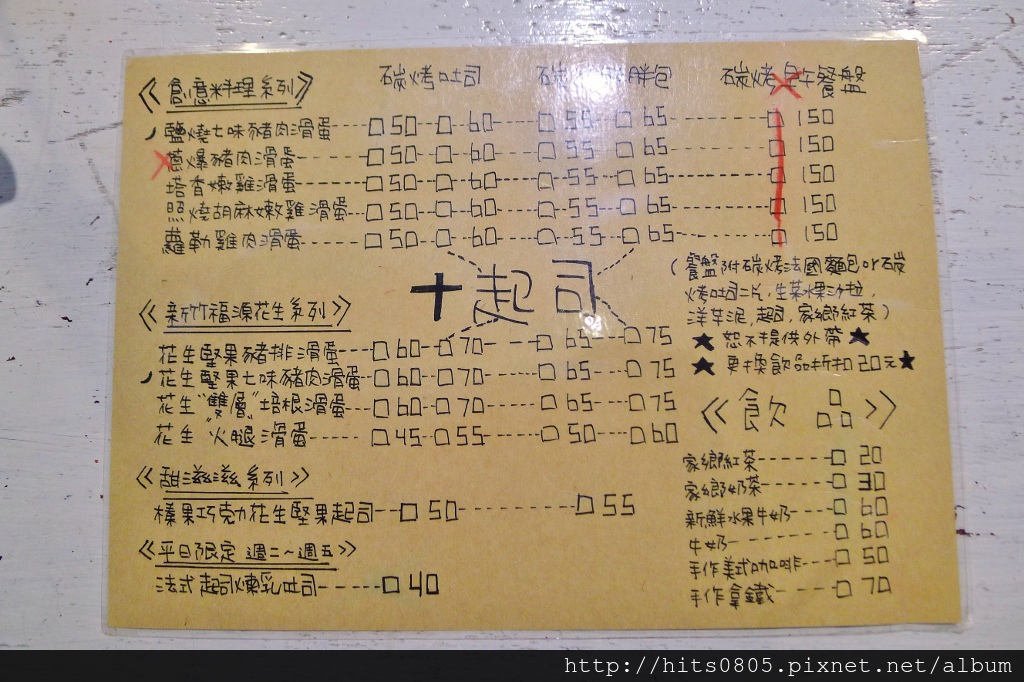 碳烤吐司 碳 胖包 碳烤早午餐盤
《創意料理系列》
鹽燒七味豬肉滑蛋---□50--□-60---□-55--□65---------□150
蔥爆豬肉滑蛋-------□50--□-60---□-55--□65---------□150
培香嫩雞滑蛋-------□50--□-60---□-55--□65---------□150
照燒胡麻嫩雞滑蛋--□50--□-60---□-55--□65---------□150
蘿勒雞肉滑蛋------□50--□-60---□-55--□65---------□150
十起司
(餐盤附碳烤法國麵包or碳
烤吐司二片,生菜水果沙拉,
洋芋泥,起司,家鄉紅茶)
★ 恕不提供外帶 ★
★ 更換飲品折扣20元★
《新竹福源花生系列》
花生堅果豬排滑蛋---□60--□70------□65---□75
花生堅果七味豬肉滑蛋--□60--□70------□65---□75
花生"雙層"培根滑蛋---□60--□70------□65---□75
花生 火腿滑蛋------□45-□55------□50---□60
《甜滋滋系列》
榛果巧克力花生堅果起司--□50---------□55
《平日限定 週二~週五》
法式起司煉乳吐司------□40
《飲品》
家鄉紅茶------□20
家鄉奶茶------□30
新鮮水果牛奶---□60
牛奶---------□60
手作美式咖啡---□50
手作拿鐵------□70
http://hits0805.pixnet.net/album